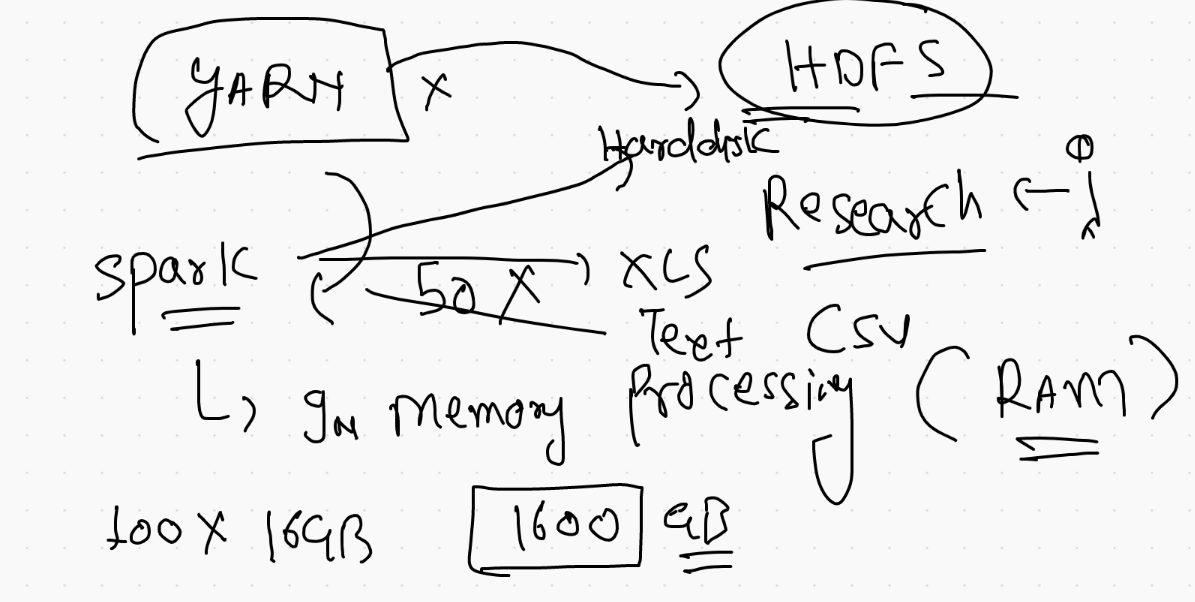 YARN X HDFS
Harddisk
Research
Spark 50 X XLS
Text CSV
In memory processing (RAM)
100 X 16GB 1600 GB